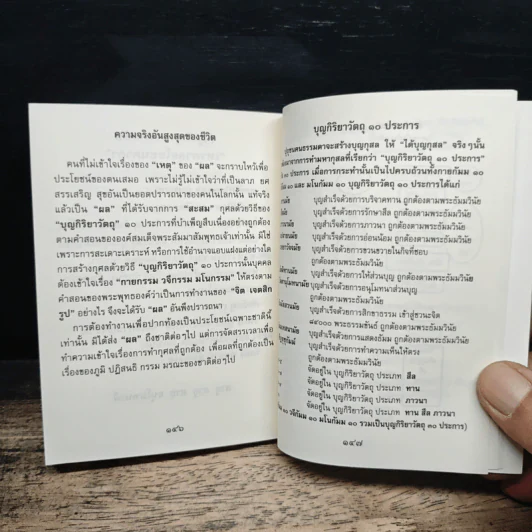 ความจริงอันสูงสุดของชีวิต
คนที่ไม่เข้าใจเรื่องของ "เหตุ" ของ "ผล" จะกราบไหว้เพื่อ
ประโยชน์ของตนเสมอ เพราะไม่รู้ไม่เข้าใจว่าที่เป็นลาภ ยศ
สรรเสริญ สุขอันเป็นยอดปรารถนาของคนในโลกนั้น แท้จริง
แล้วเป็น "ผล" ที่ได้รับจากการ "สะสม" กุศลด้วยวิธีของ
"บุญกิริยาวัตถุ" ๑๐ ประการที่บำเพ็ญสืบเนื่องอย่างถูกต้อง
ตามคำสอนขององค์สมเด็จพระสัมมาสัมพุทธเจ้าเท่านั้น มิใช่
เพราะการสะเดาะเคราะห์ หรือการใช้อำนาจแอบแฝงแต่อย่างใด
การสร้างกุศลด้วยวิธี "บุญกิริยาวัตถุ" ๑๐ ประการนั้นบุคคล
ต้องเข้าใจเรื่อง "กายกรรม วจีกรรม มโนกรรม" ให้ตรงตาม
คำสอนของพระพุทธองค์ว่าเป็นการทำงานของ "จิต เจตสิก
รูป" อย่างไร จึงจะได้รับ "ผล" อันพึงปรารถนา
การต้องทำงานเพื่อปากท้องเป็นประโยชน์เฉพาะชาตินี้
เท่านั้น มิได้ส่ง "ผล" ถึงชาติต่อๆไป แต่การจัดสรรเวลาเพื่อ
ทำความเข้าใจเรื่องการทำกุศลที่ถูกต้อง เพื่อผลที่ถูกต้องเป็น
เรื่องของภูมิ ปฏิสนธิ กรรม มรณะของชาติต่อๆไป
๑๔๖
บุญกิริยาวัตถุ ๑๐ ประการ
ปุถุชนคนธรรมดาจะสร้างบุญกุศล ให้ "ได้บุญกุศล" จริงๆนั้น
มาจากการทำมหากุศลที่เรียกว่า "บุญกิริยาวัตถุ ๑๐ ประการ"
๑๐ ประการ เมื่อการกระทำนั้นเป็นไปครบถ้วนทั้งกายกัมม ๑๐
๑๐ และ มโนกัมม ๑๐ บุญกิริยาวัตถุ ๑๐ ประการได้แก่
บุญสำเร็จด้วยการบริจาคทาน ถูกต้องตามพระธัมมวินัย
บุญสำเร็จด้วยการรักษาศีล ถูกต้องตามพระธัมมวินัย
บุญสำเร็จด้วยการภาวนา ถูกต้องตามพระธัมมวินัย
บุญสำเร็จด้วยการอ่อนน้อม ถูกต้องตามพระธัมมวินัย
บุญสำเร็จด้วยการขวนขวายในกิจที่ชอบ
ถูกต้องตามพระธัมมวินัย
บุญสำเร็จด้วยการให้ส่วนบุญ ถูกต้องตามพระธัมมวินัย
บุญสำเร็จด้วยการอนุโมทนาส่วนบุญ
ถูกต้องตามพระธัมมวินัย
บุญสำเร็จด้วยการศึกษาธรรม เข้าสู่ขวนะจิต
๘๔๐๐๐ พระธรรมขันธ์ ถูกต้องตามพระธัมมวินัย
บุญสำเร็จด้วยการแสดงธัมม ถูกต้องตามพระธัมมวินัย
บุญสำเร็จด้วยการทำความเห็นให้ตรง
ถูกต้องตามพระธัมมวินัย
จัดอยู่ใน บุญกิริยาวัตถุ ประเภท ศีล
จัดอยู่ใน บุญกิริยาวัตถุ ประเภท ทาน
จัดอยู่ใน บุญกิริยาวัตถุ ประเภท ภาวนา
จัดอยู่ใน บุญกิริยาวัตถุ ประเภท ทาน ศีล ภาวนา
๑๐ วจีกัมม ๑๐ มโนกัมม ๑๐ รวมเป็นบุญกิริยาวัตถุ ๓๐ ประการ)
๑๔๗